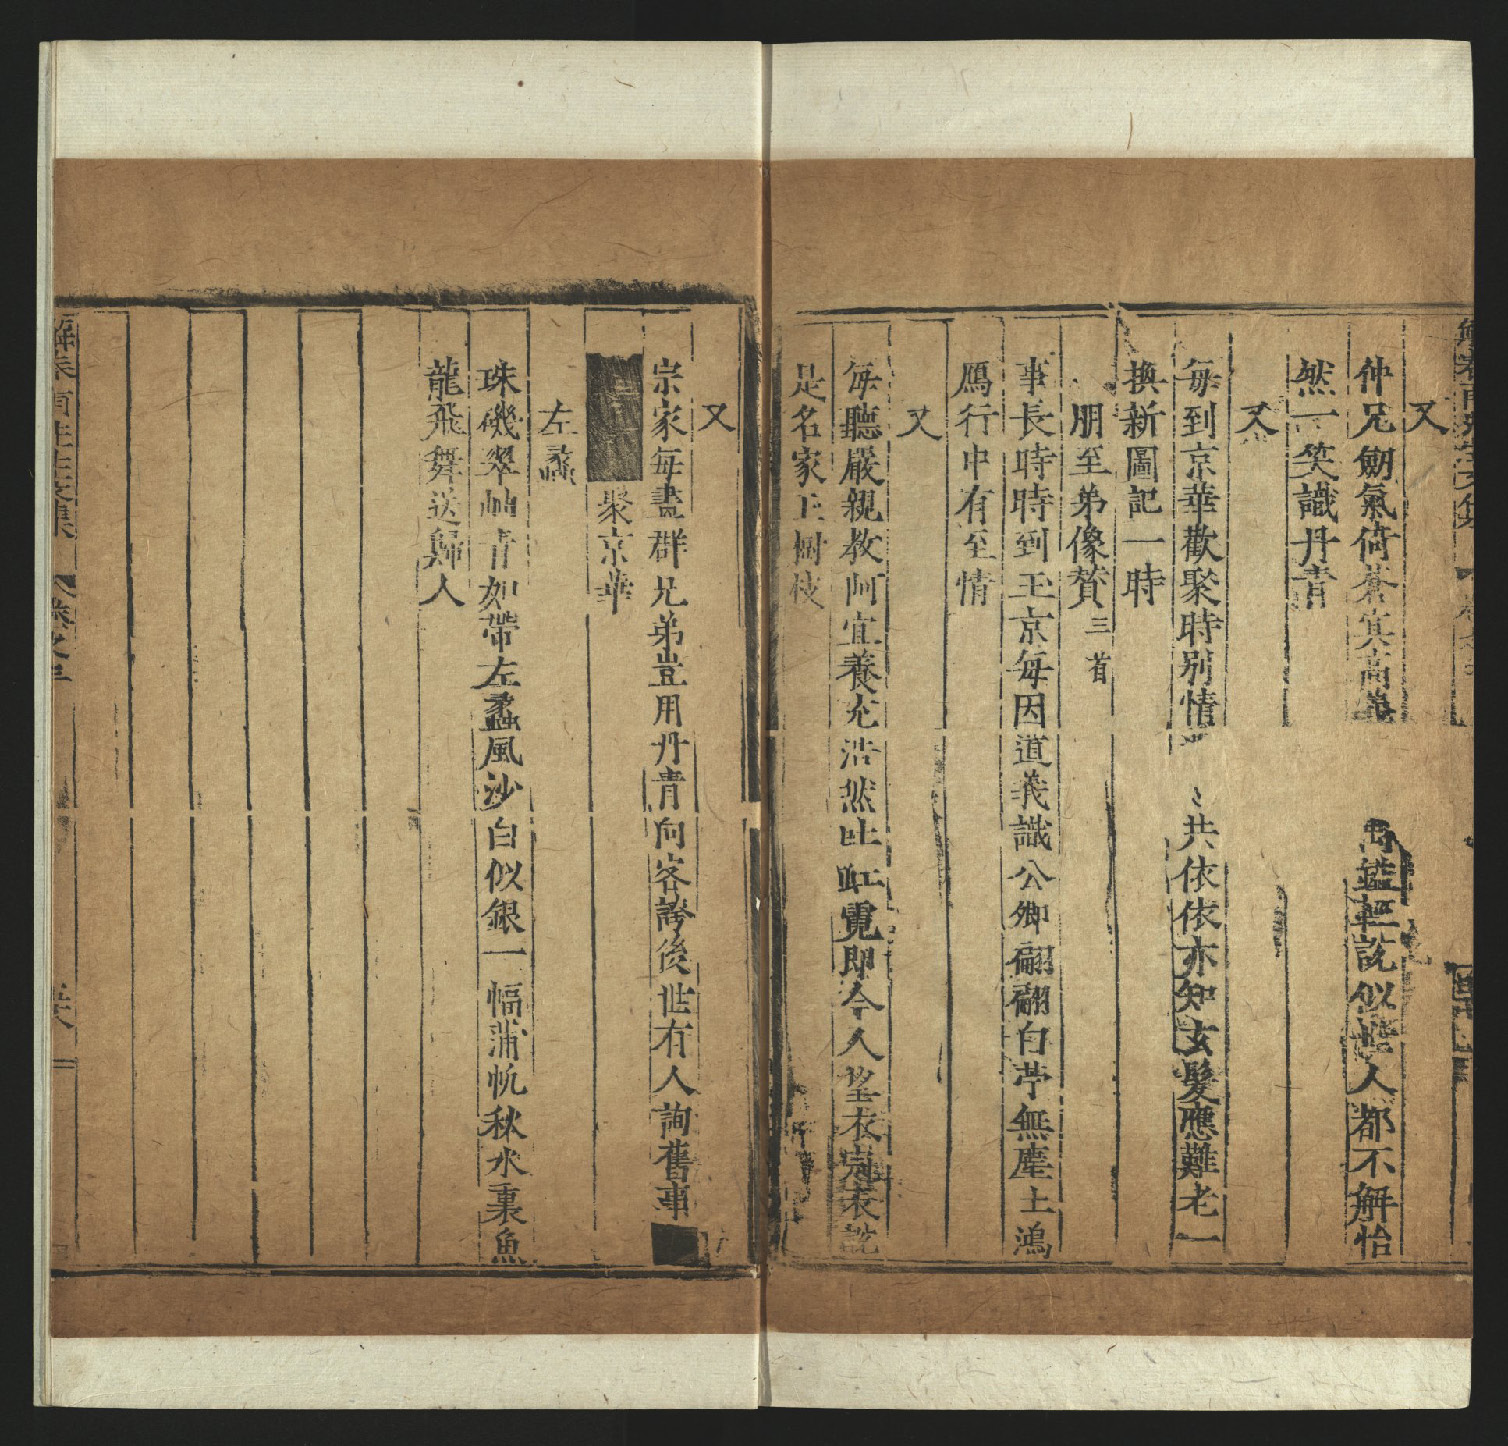 又
仲兄劒氣倚蒼冥高義 鑑輕説似世人都不解怡
然一笑識丹青
又
每到京華歡聚時別情 共依依亦知玄髮應難老一
換新圖記一時
朋至弟像贊三首
事長時時到玉京每因道義識公卿翩翩白苧無塵土鴻
鴈行中有至情
又
每聽嚴親教阿宜養充浩然吐虹霓即今人望衣冠表説
是名家玉樹枝
又
宗家每畫群兄弟豈用丹青向客誇後世有人詢舊事
聚京華
左蠡
珠磯翠岫青如帶左蠡風沙白似銀一幅蒲帆秋水裏魚
龍飛舞送歸人